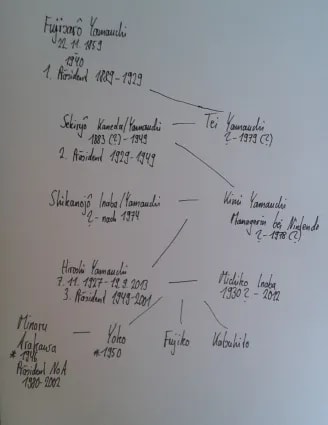 Fusajirō Yamauchi
22.11.1859
1940
1. Präsident 1889-1929
Sekiryō Kaneda/Yamauchi — Tei Yamauchi
1883 (?) - 1949
?-1979 (?)
2. Präsident 1929-1949
Shikanojō Inaba/Yamauchi — Kimi Yamauchi
?- nach 1974
Managerin bei Nintendo
?-1978 (?)
Hiroshi Yamauchi — Michiko Inaba
7.11.1927 - 19.9.2013
1930? - 2012
3. Präsident 1949-2001
Minoru
Arakawa — Yoko
*1946
*1950
Fujiko
Katsuhito
Präsident NoA
1980-2002